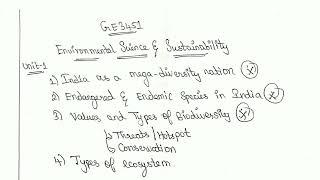 GE3451
Environmental Science & Sustainability
Unit-1
1) India as a mega-diversity nation
2) Endangered & Endemic Species in India
3) Values and Types of Biodiversity
↳ Threats / Hotspot
↳ Conservation
4) Types of ecosystem.